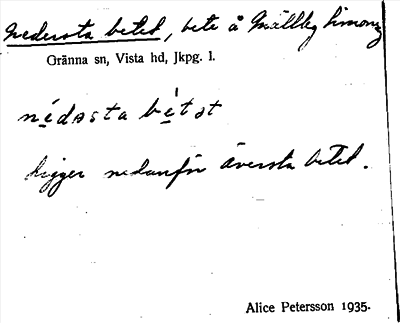 Nedersta betet, bete å
Gränna sn, Vista hd, Jkpg. l.
nédəsta bétət
Ligger nedanför Översta betet.
Alice Petersson 1935.